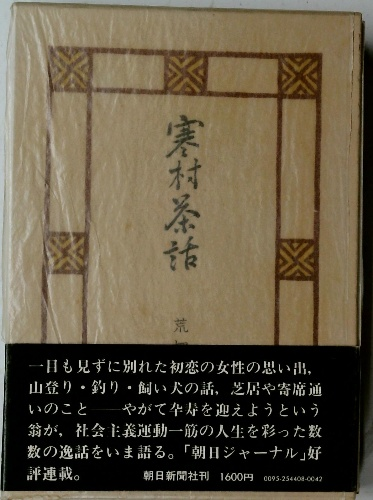 寒村茶話
荒
一目も見ずに別れた初恋の女性の思い出,
山登り・釣り・飼い犬の話，芝居や寄席通
いのこと——やがて卒寿を迎えようという
翁が，社会主義運動一筋の人生を彩った数
数の逸話をいま語る。「朝日ジャーナル」好
評連載。
朝日新聞社刊 1600円 0095-254408-0042